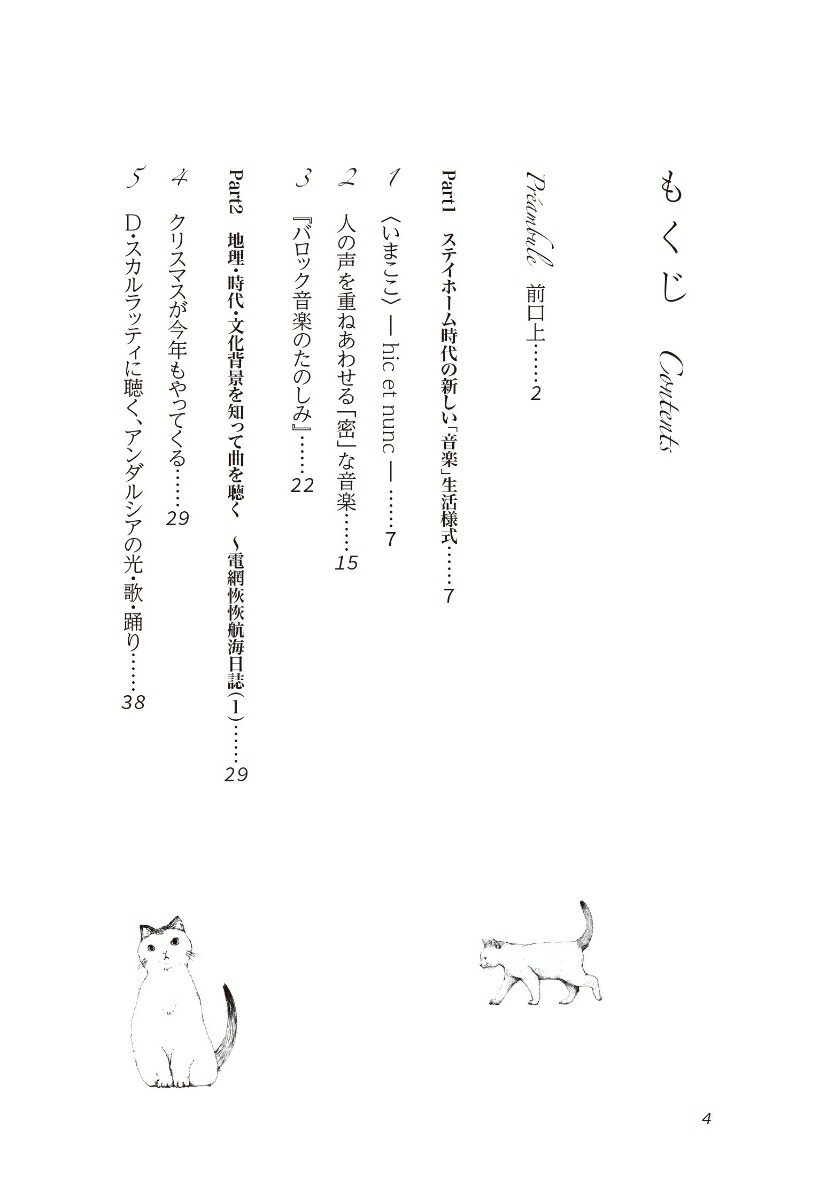 もくじ Contents
Préambule 前口上……2
Part1 ステイホーム時代の新しい「音楽」生活様式……7
1 〈いまここ〉― hic et nunc ― ……7
2 人の声を重ねあわせる「密」な音楽……15
3 『バロック音楽のたのしみ』……22
Part2 地理・時代・文化背景を知って曲を聴く ～電網恢恢航海日誌(1)……29
4 クリスマスが今年もやってくる……29
5 D・スカルラッティに聴く、アンダルシアの光・歌・踊り……38
4